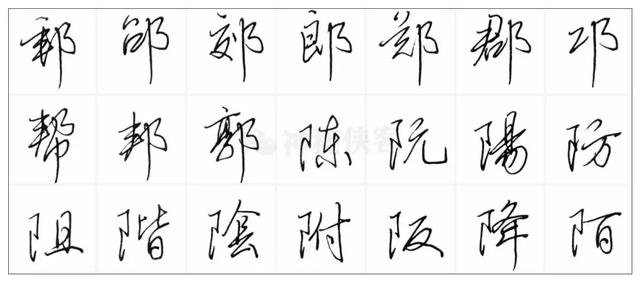 郵 郊 郎 郑 郡 邛
帮 邦 郭 陈 阮 陽 防
阻 階 陰 附 阪 降 陌